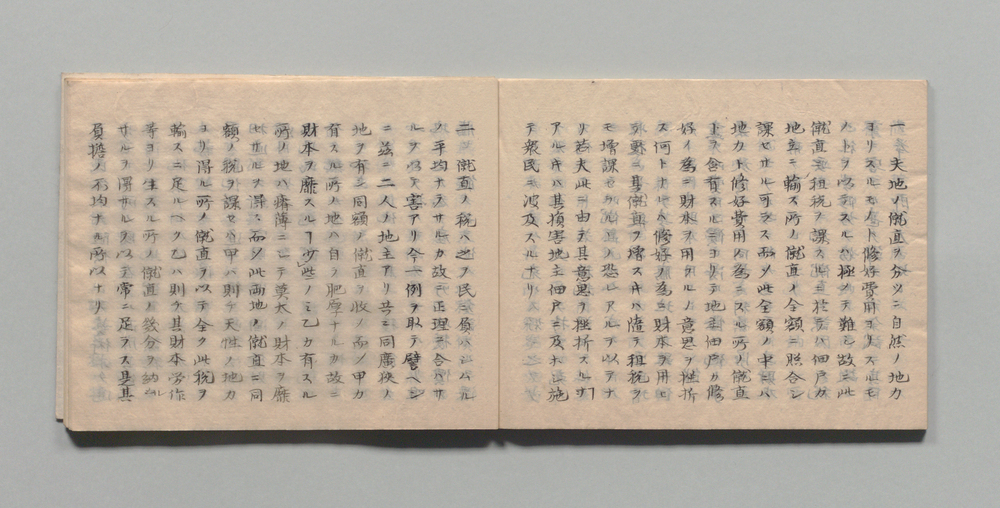 一 夫地ノ僦直ヲ分ツニ自然ノ地力
ヨリスルモノト修好費用ヨリスルモ
ノトヲ以テスルハ極メテ難シ故ニ此
僦直ニ租税ヲ課スルニ於テハ佃戸カ
地主ニ輸ス所ノ僦直ノ全額ニ照合シ
課セサル可ラス而シテ此全額ノ中ニハ
地力ト修好費用ノ為ニスル所ノ僦直
トヲ含有スルニヨリテ地主佃戸カ修
好ノ為ニ財本ヲ用ヰルノ意思ヲ挫折
ス何トナレハ修好ノ為ニ財本ヲ用ヒ
テ
其僦直ヲ増ストキハ随テ租税ヲ
モ増課セラルヽノ恐レアルヲ以テナ
リ若夫此ニ由テ其意思ヲ挫折スルヿ
アルトキハ其損害地主佃戸ニ及ホシ施
テ衆民ニ波及スルナリ
二 僦直ノ税ハ之ヲ民ニ負ハシムル
ノ平均ナラサルカ故ニ正理ニ合ハサ
ルヲ以テ害アリ今一例ヲ取テ譬ヘン
ニ茲ニ二人ノ地主アリ共ニ同広狭ノ
地ヲ有シ同額ノ僦直ヲ収ム而ノ甲カ
有スル所ノ地ハ自ラ肥厚ナルカ故ニ
財本ヲ靡スルヿ少些ノミ乙カ有スル
所ノ地ハ瘠薄ニシテ莫大ノ財本ヲ靡
セサルヲ得ス而シテ此両地ノ僦直ニ同
額ノ税ヲ課セハ甲ハ則チ天性ノ地力
ヨリ得ル所ノ僦直ヲ以テ全ク此税ヲ
輸スニ足ルヘク乙ハ則チ其財本労作
等ヨリ生スル所ノ僦直ノ幾分ヲ納メ
サルヲ得サルヲ以テ常ニ足ラス是其
負担ノ不均ナル所以ナリ